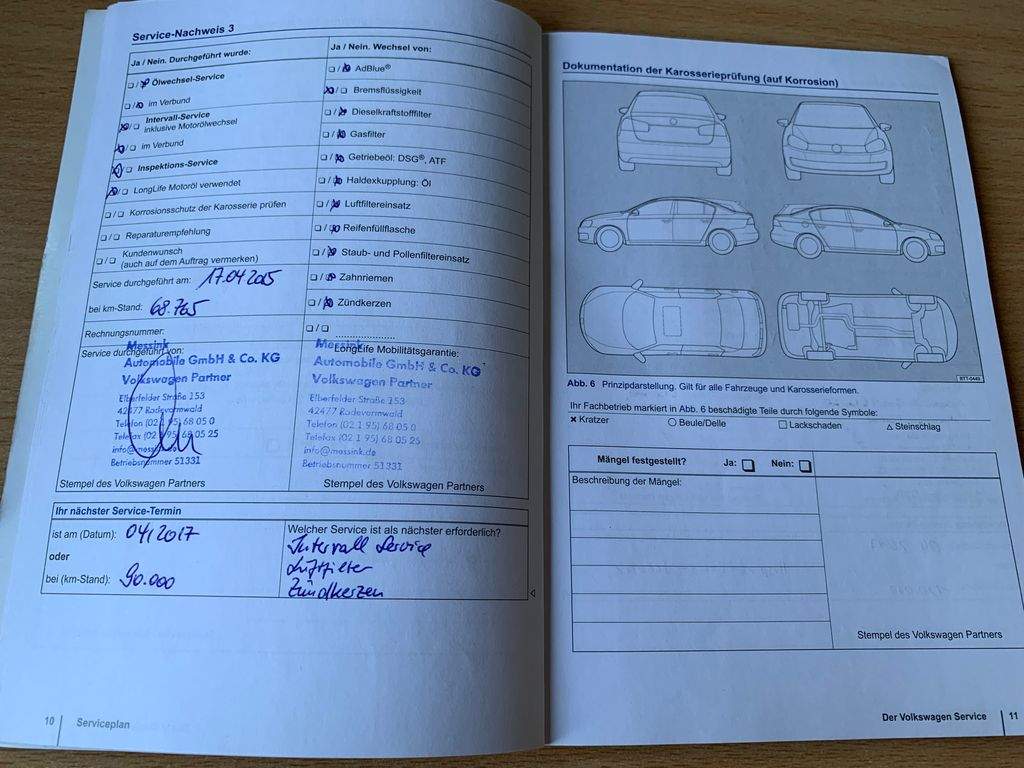 Service-Nachweis 3
Ja / Nein. Durchgeführt wurde:
☐ / ☒ Ölwechsel-Service
☐ / ☒ im Verbund
☒ / ☐ Intervall-Service
inklusive Motorölwechsel
☒ / ☐ im Verbund
☒ / ☐ Inspektions-Service
☒ / ☐ LongLife Motoröl verwendet
☐ / ☐ Korrosionsschutz der Karosserie prüfen
☐ / ☐ Reparaturempfehlung
☐ / ☐ Kundenwunsch
(auch auf dem Auftrag vermerken)
Service durchgeführt am: 17.04.2015
bei km-Stand: 68.765
Rechnungsnummer:
Service durchgeführt von:
Messink
Automobile GmbH & Co. KG
Volkswagen Partner
Elberfelder Straße 153
42477 Radevormwald
Telefon (02 1 95) 68 05 0
Telefax (02 1 95) 68 05 25
info@messink.de
Betriebsnummer 51331
Stempel des Volkswagen Partners
Ja / Nein. Wechsel von:
☐ / ☒ AdBlue®
☒ / ☐ Bremsflüssigkeit
☐ / ☒ Dieselkraftstofffilter
☐ / ☒ Gasfilter
☐ / ☒ Getriebeöl: DSG®, ATF
☐ / ☒ Haldexkupplung: Öl
☐ / ☒ Luftfiltereinsatz
☐ / ☒ Reifenfüllflasche
☐ / ☒ Staub- und Pollenfiltereinsatz
☐ / ☒ Zahnriemen
☐ / ☒ Zündkerzen
☐ / ☐
LongLife Mobilitätsgarantie:
Messink
Automobile GmbH & Co. KG
Volkswagen Partner
Elberfelder Straße 153
42477 Radevormwald
Telefon (02 1 95) 68 05 0
Telefax (02 1 95) 68 05 25
info@messink.de
Betriebsnummer 51331
Stempel des Volkswagen Partners
Ihr nächster Service-Termin
ist am (Datum): 04/2017
oder
bei (km-Stand): 90.000
Welcher Service ist als nächster erforderlich?
Intervall Service
Luftfilter
Zündkerzen
10 | Serviceplan
Dokumentation der Karosserieprüfung (auf Korrosion)
BTT-0449
Abb. 6 Prinzipdarstellung. Gilt für alle Fahrzeuge und Karosserieformen.
Ihr Fachbetrieb markiert in Abb. 6 beschädigte Teile durch folgende Symbole:
✖ Kratzer ○ Beule/Delle ☐ Lackschaden △ Steinschlag
Mängel festgestellt? Ja: ☐ Nein: ☐
Beschreibung der Mängel:
Stempel des Volkswagen Partners
Der Volkswagen Service | 11